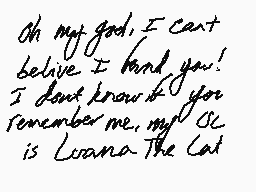 Oh my god, I can't
belive I found you!
I dont know if you
remember me, my OC
is Loana The Cat